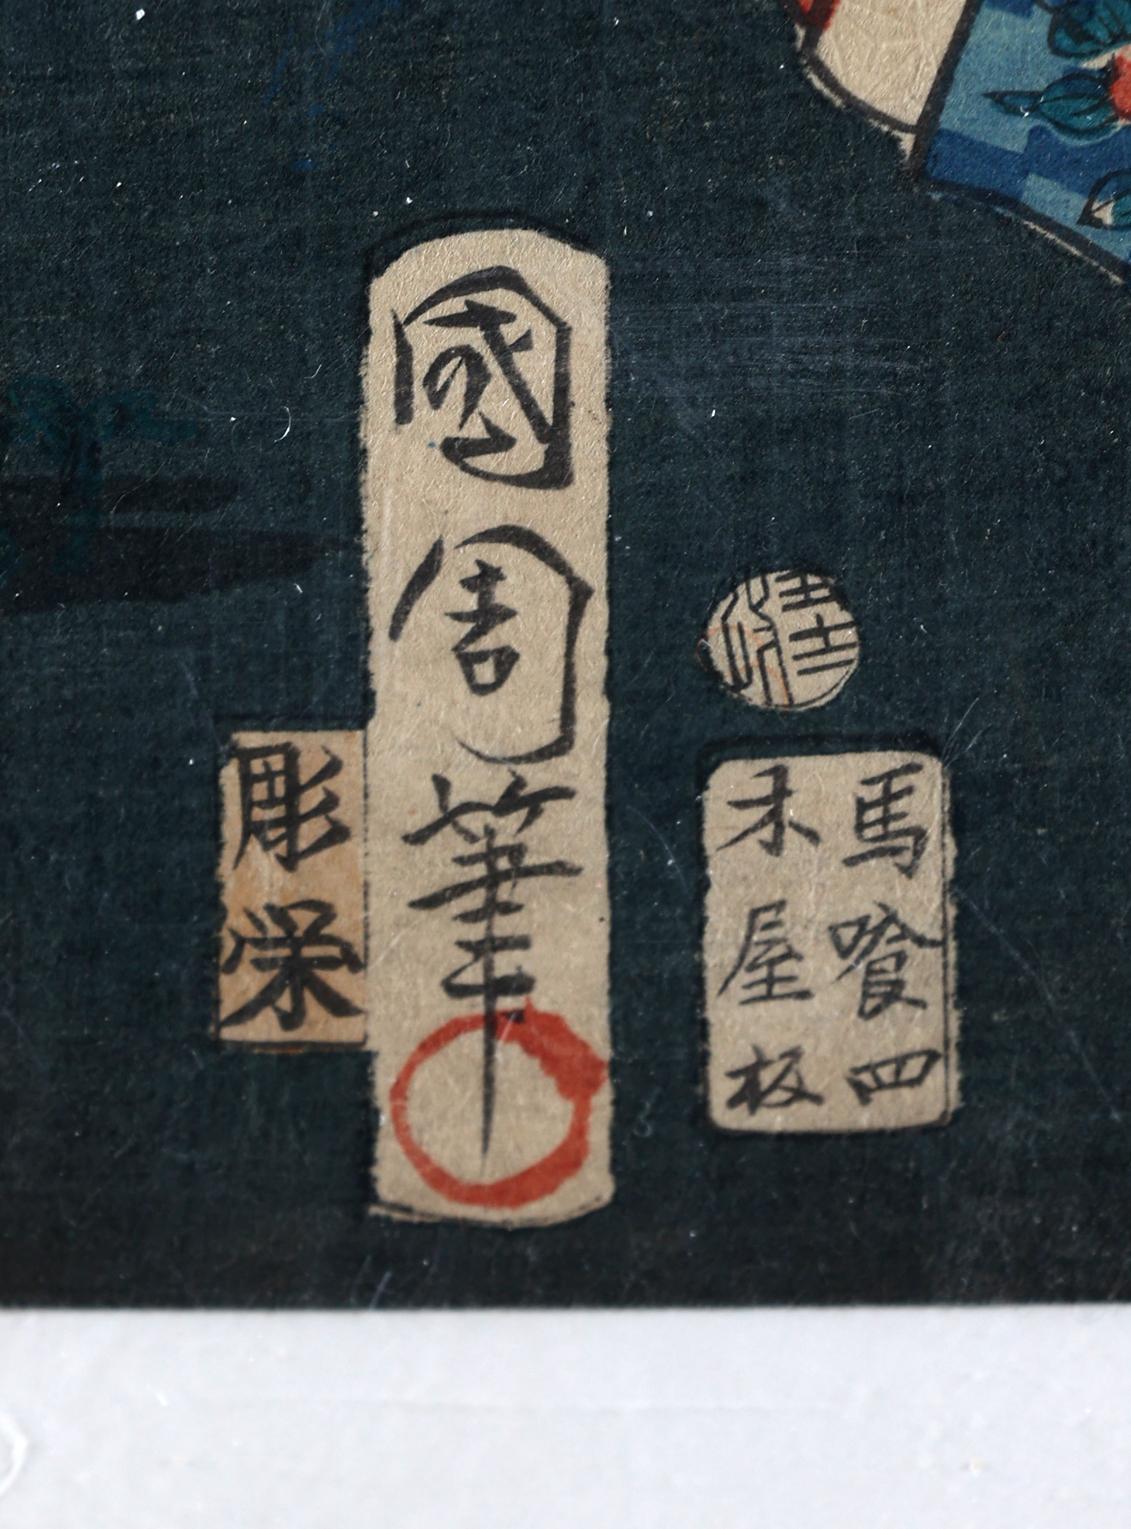 馬喰四
木屋板
國周筆
彫栄